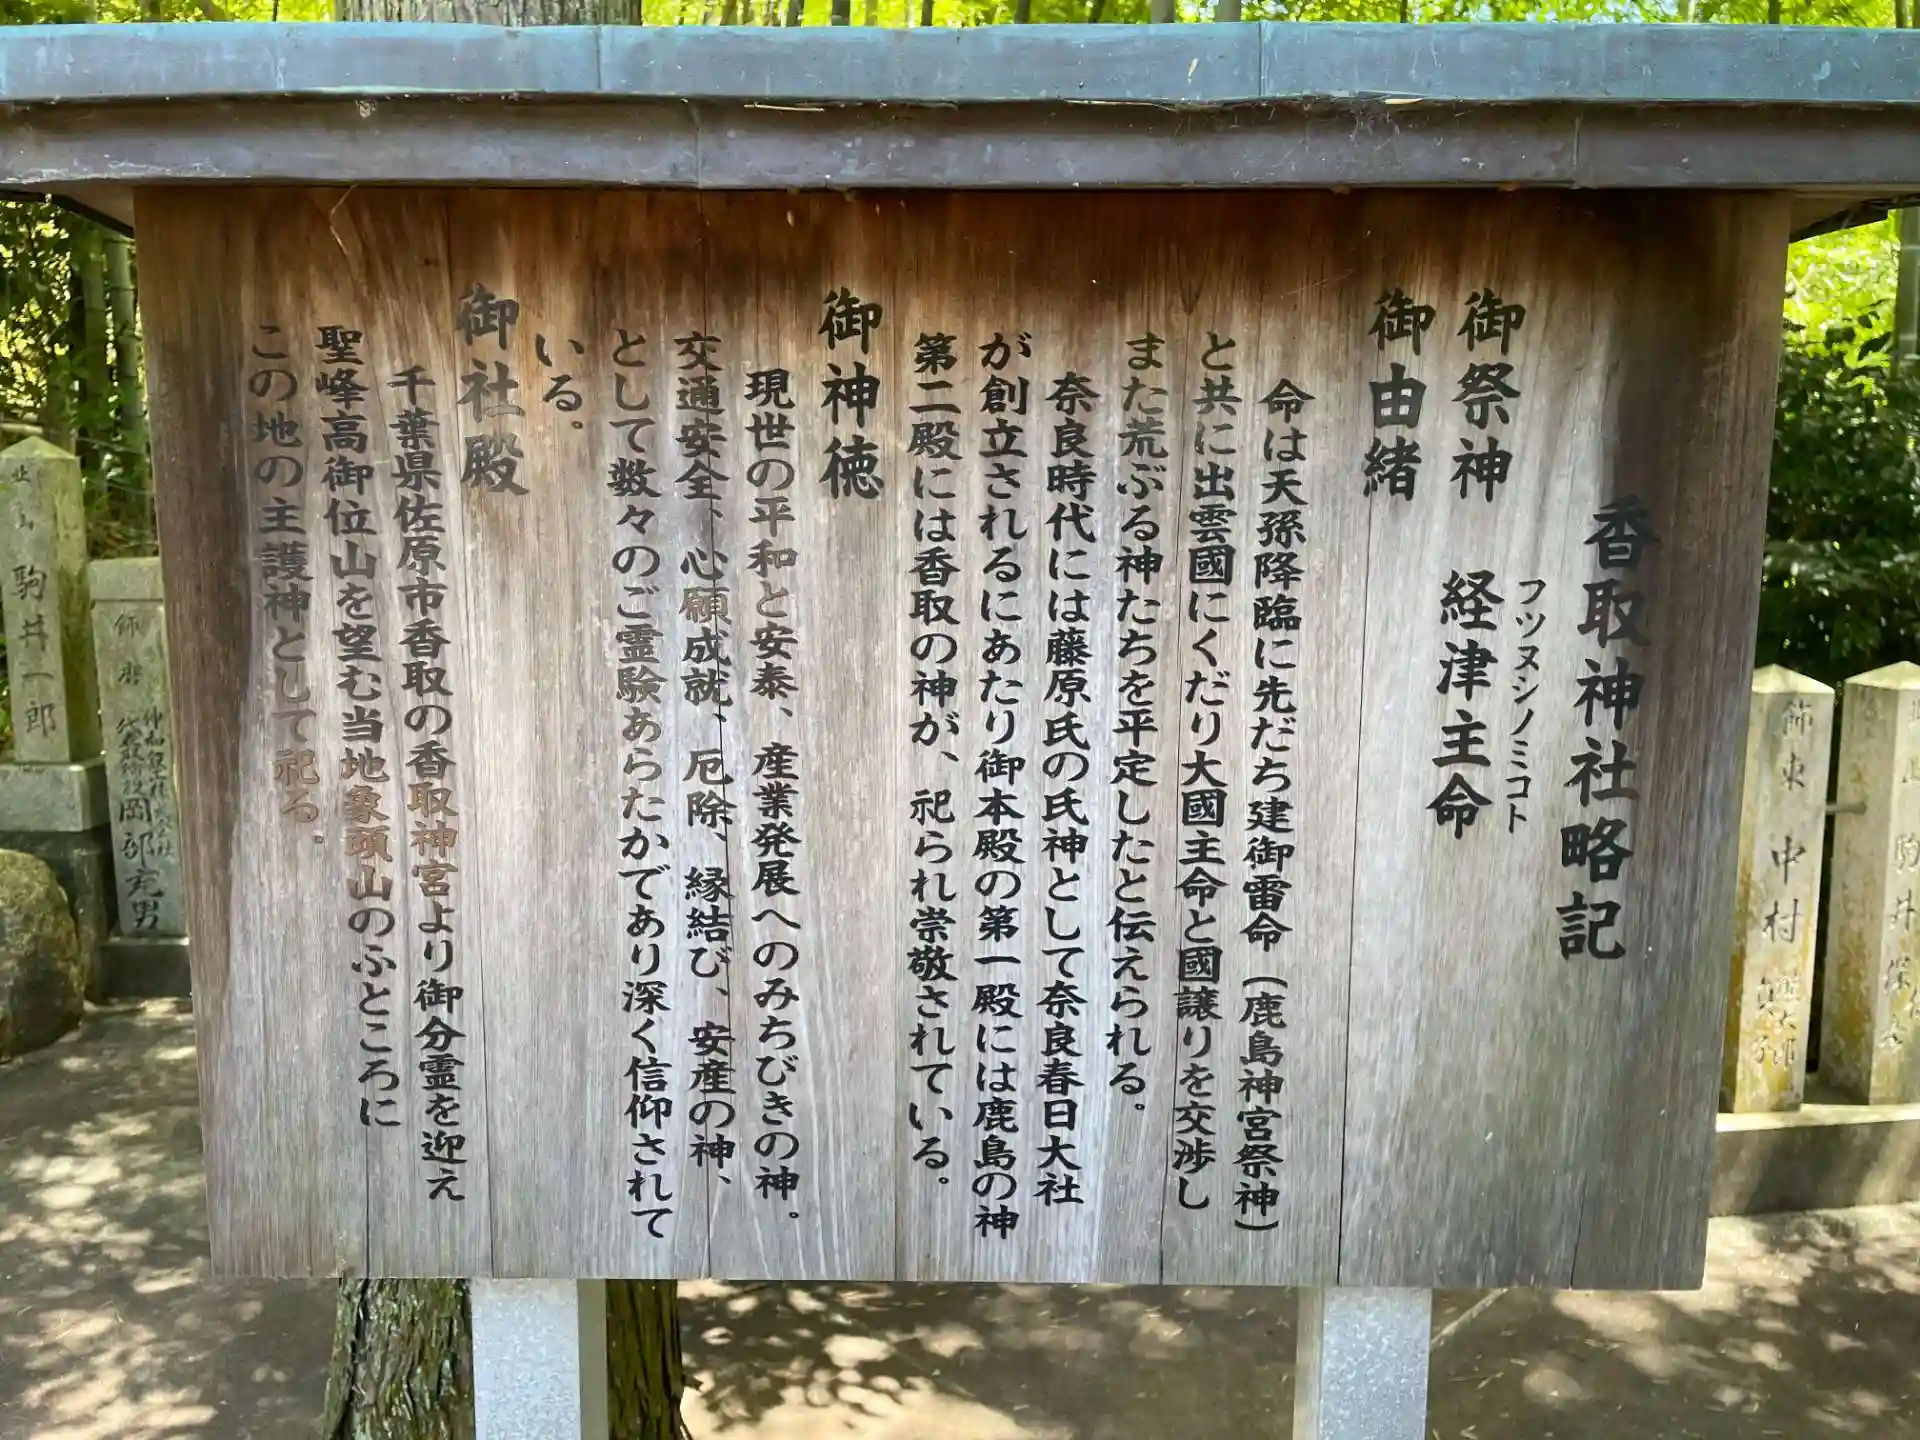 香取神社略記
御祭神　経津主命
フツヌシノミコト
御由緒
命は天孫降臨に先だち建御雷命（鹿島神宮祭神）
と共に出雲國にくだり大國主命と國譲りを交渉し
また荒ぶる神たちを平定したと伝えられる。
奈良時代には藤原氏の氏神として奈良春日大社
が創立されるにあたり御本殿の第一殿には鹿島の神
第二殿には香取の神が、祀られ崇敬されている。
御神徳
現世の平和と安泰、産業発展へのみちびきの神。
交通安全、心願成就、厄除、縁結び、安産の神、
として数々のご霊験あらたかであり深く信仰されて
いる。
御社殿
千葉県佐原市香取の香取神宮より御分霊を迎え
聖峰高御位山を望む当地象頭山のふところに
この地の主護神として祀る。
飾東　中村
駒井
駒井一郎
飾磨
岡部充男